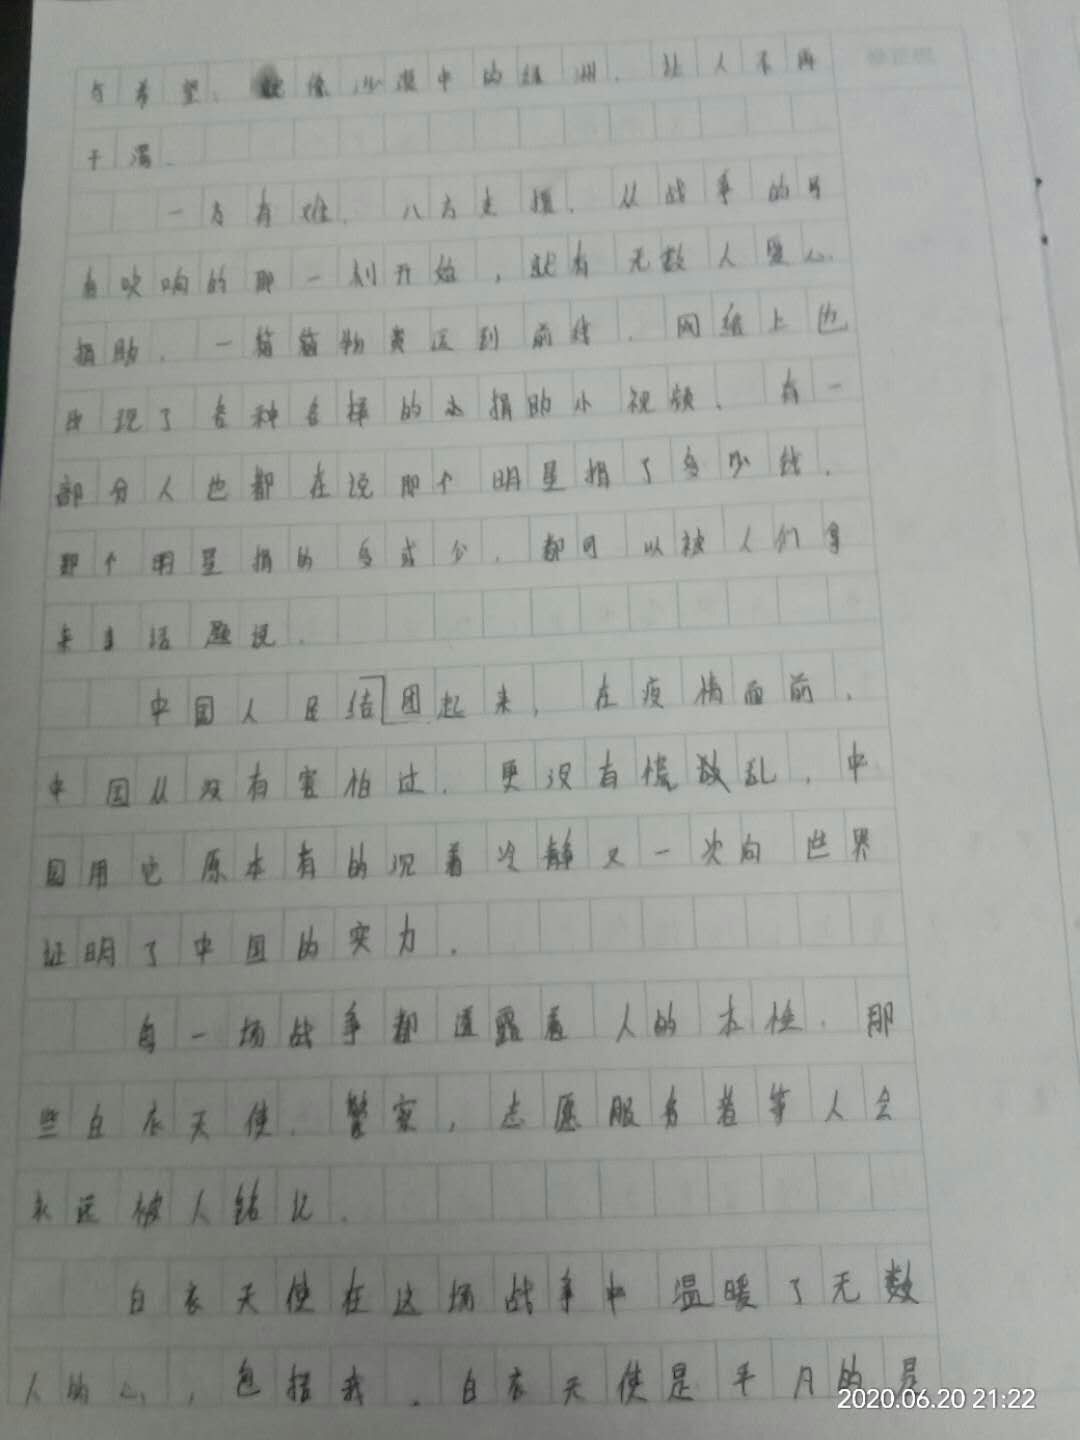 与希望、就像沙漠中的绿洲，让人不再
干渴。
一方有难，八方支援，从战争的号
角吹响的那一刻开始，就有无数人爱心
捐助，一箱箱物资运到前线，网络上也
出现了各种各样的捐助小视频，有一
部分人也都在说那个明星捐了多少钱，
那个明星捐的多或少，都可以被人们拿
来当话题说。
中国人民结团起来，在疫情面前，
中国从没有害怕过，更没有慌散乱，中
国用它原本有的沉着冷静又一次向世界
证明了中国的实力。
每一场战争都透露着人的本性，那
些白衣天使、警察，志愿服务者等人会
永远被人铭记。
白衣天使在这场战争中温暖了无数
人的心，包括我。白衣天使是平凡的是
2020.06.20 21:22